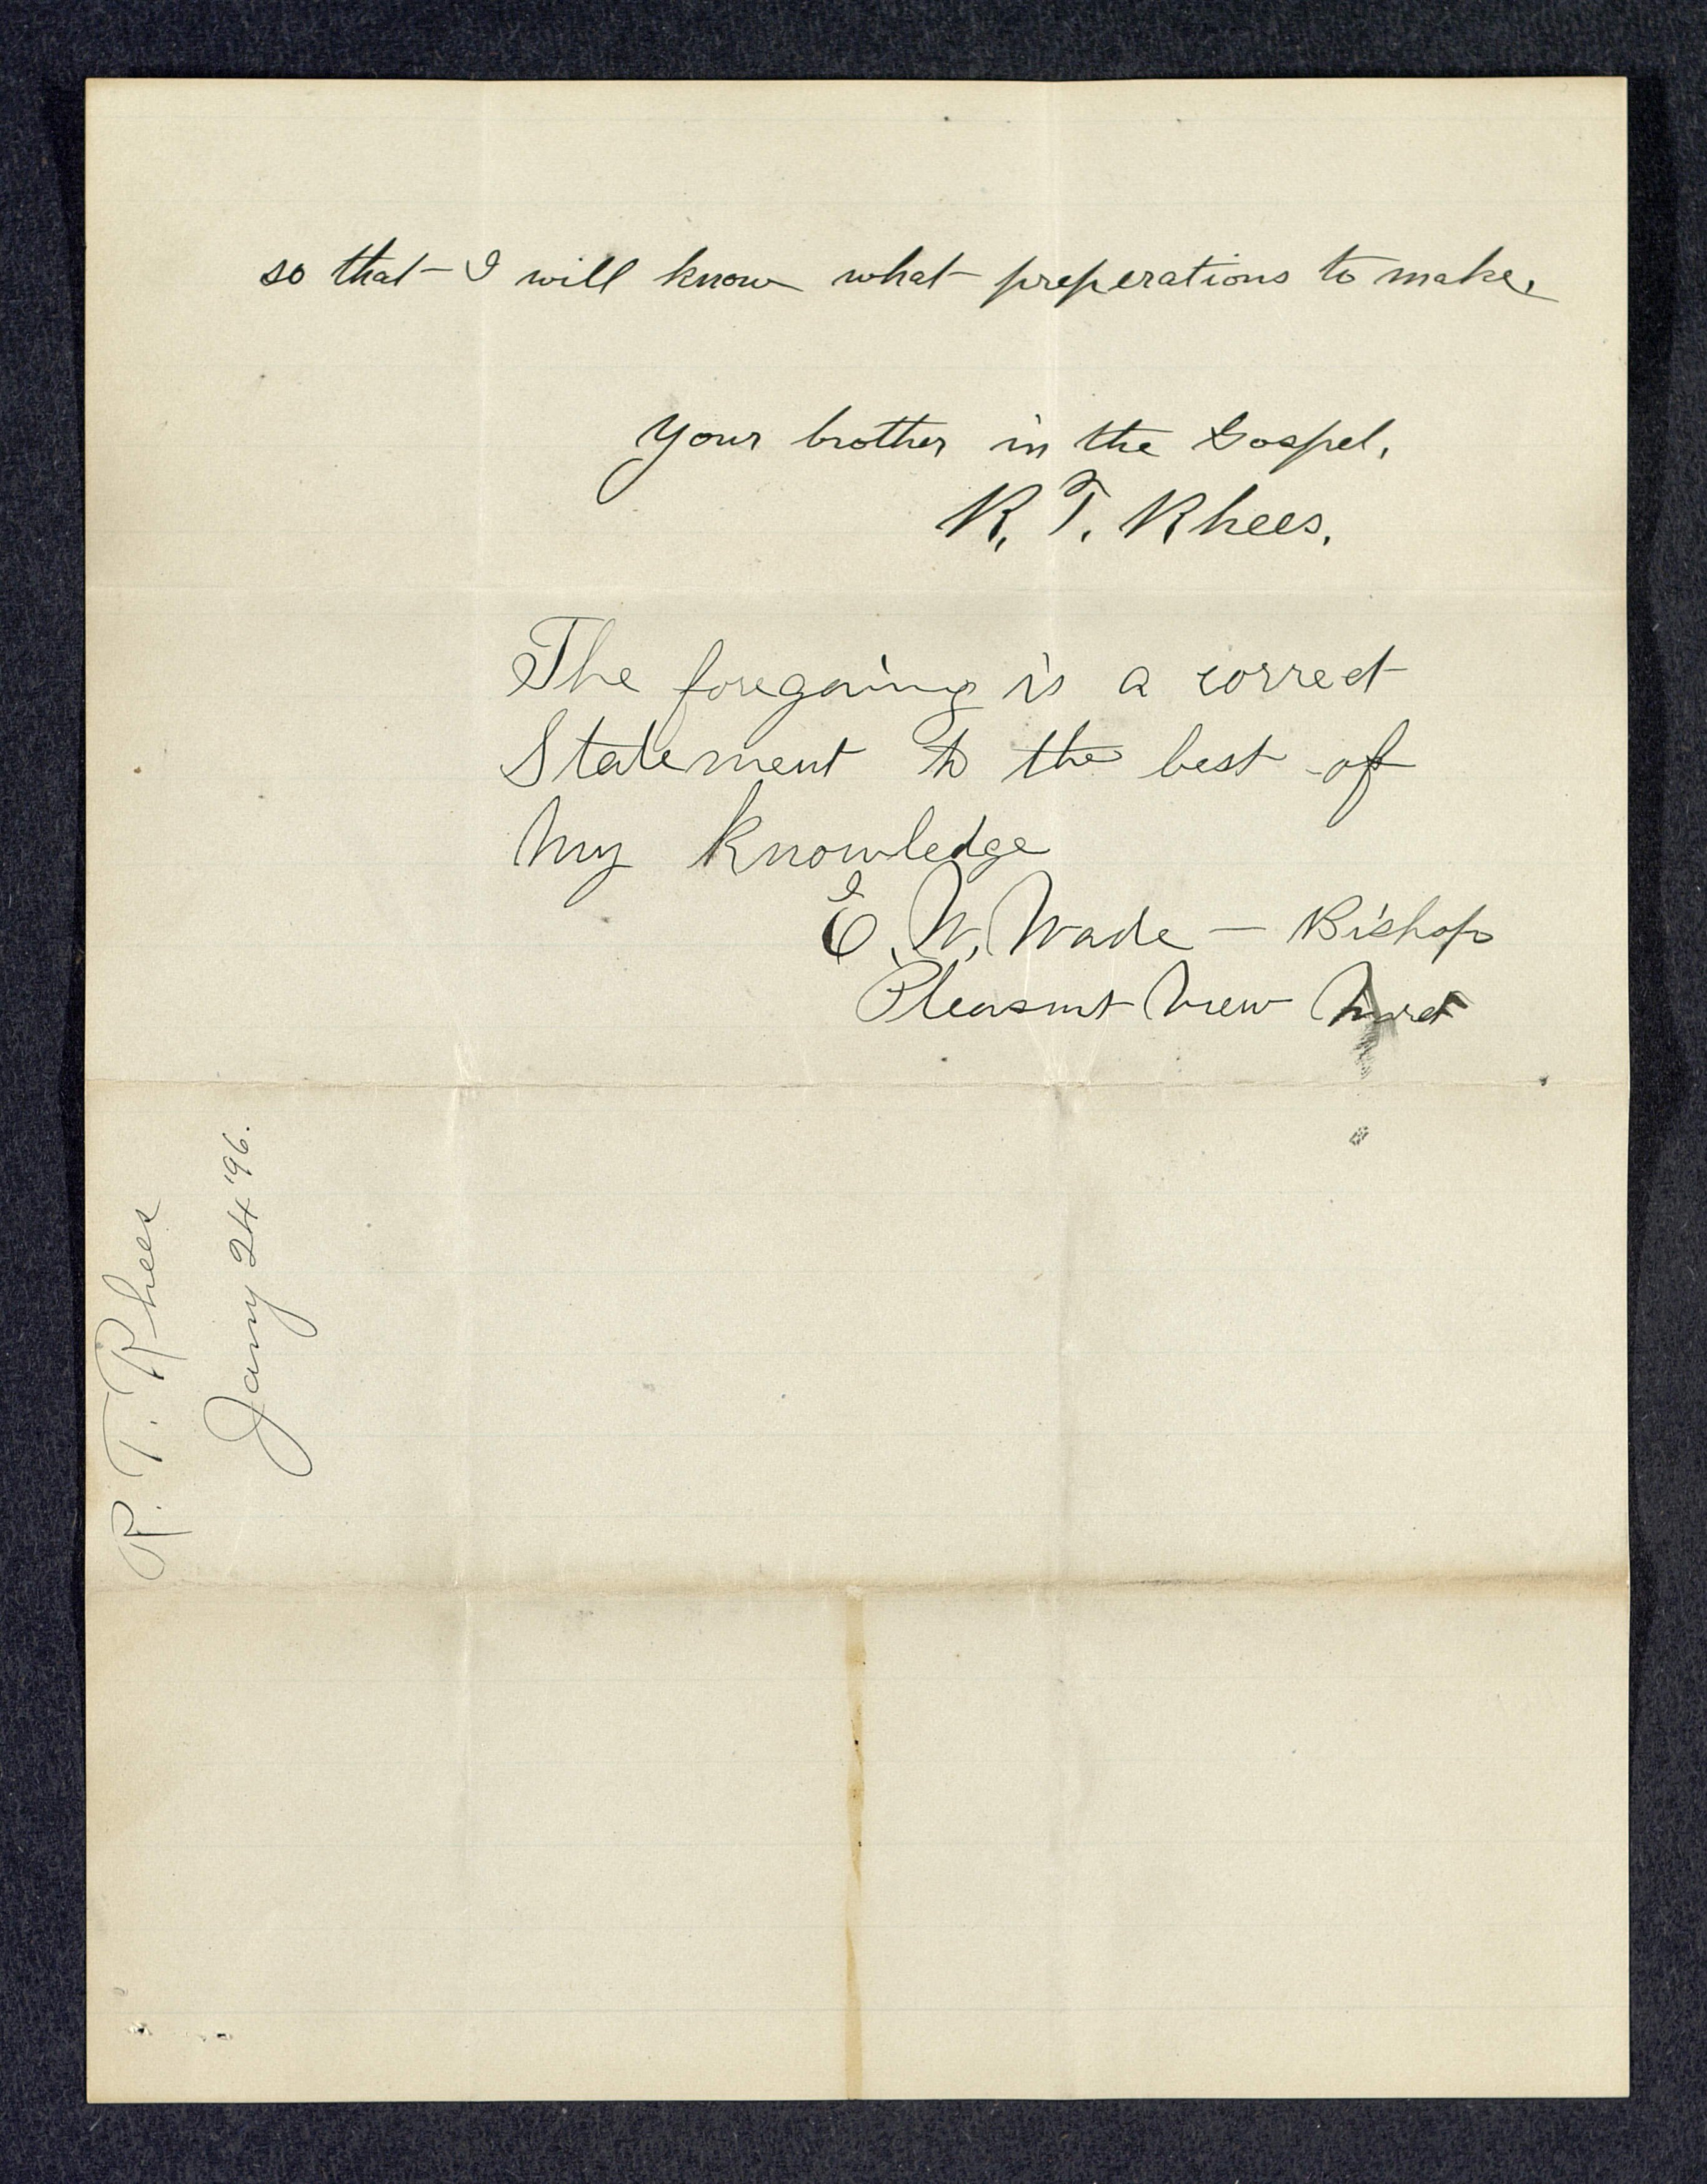 so that I will know what preperations to make.
Your brother in the Gospel,
R. T. Rhees.
The foregoing is a correct
Statement to the best of
my knowledge
E. W. Wade — Bishop
Pleasant View Ward
R. T. Rhees
Jany 24 '96.